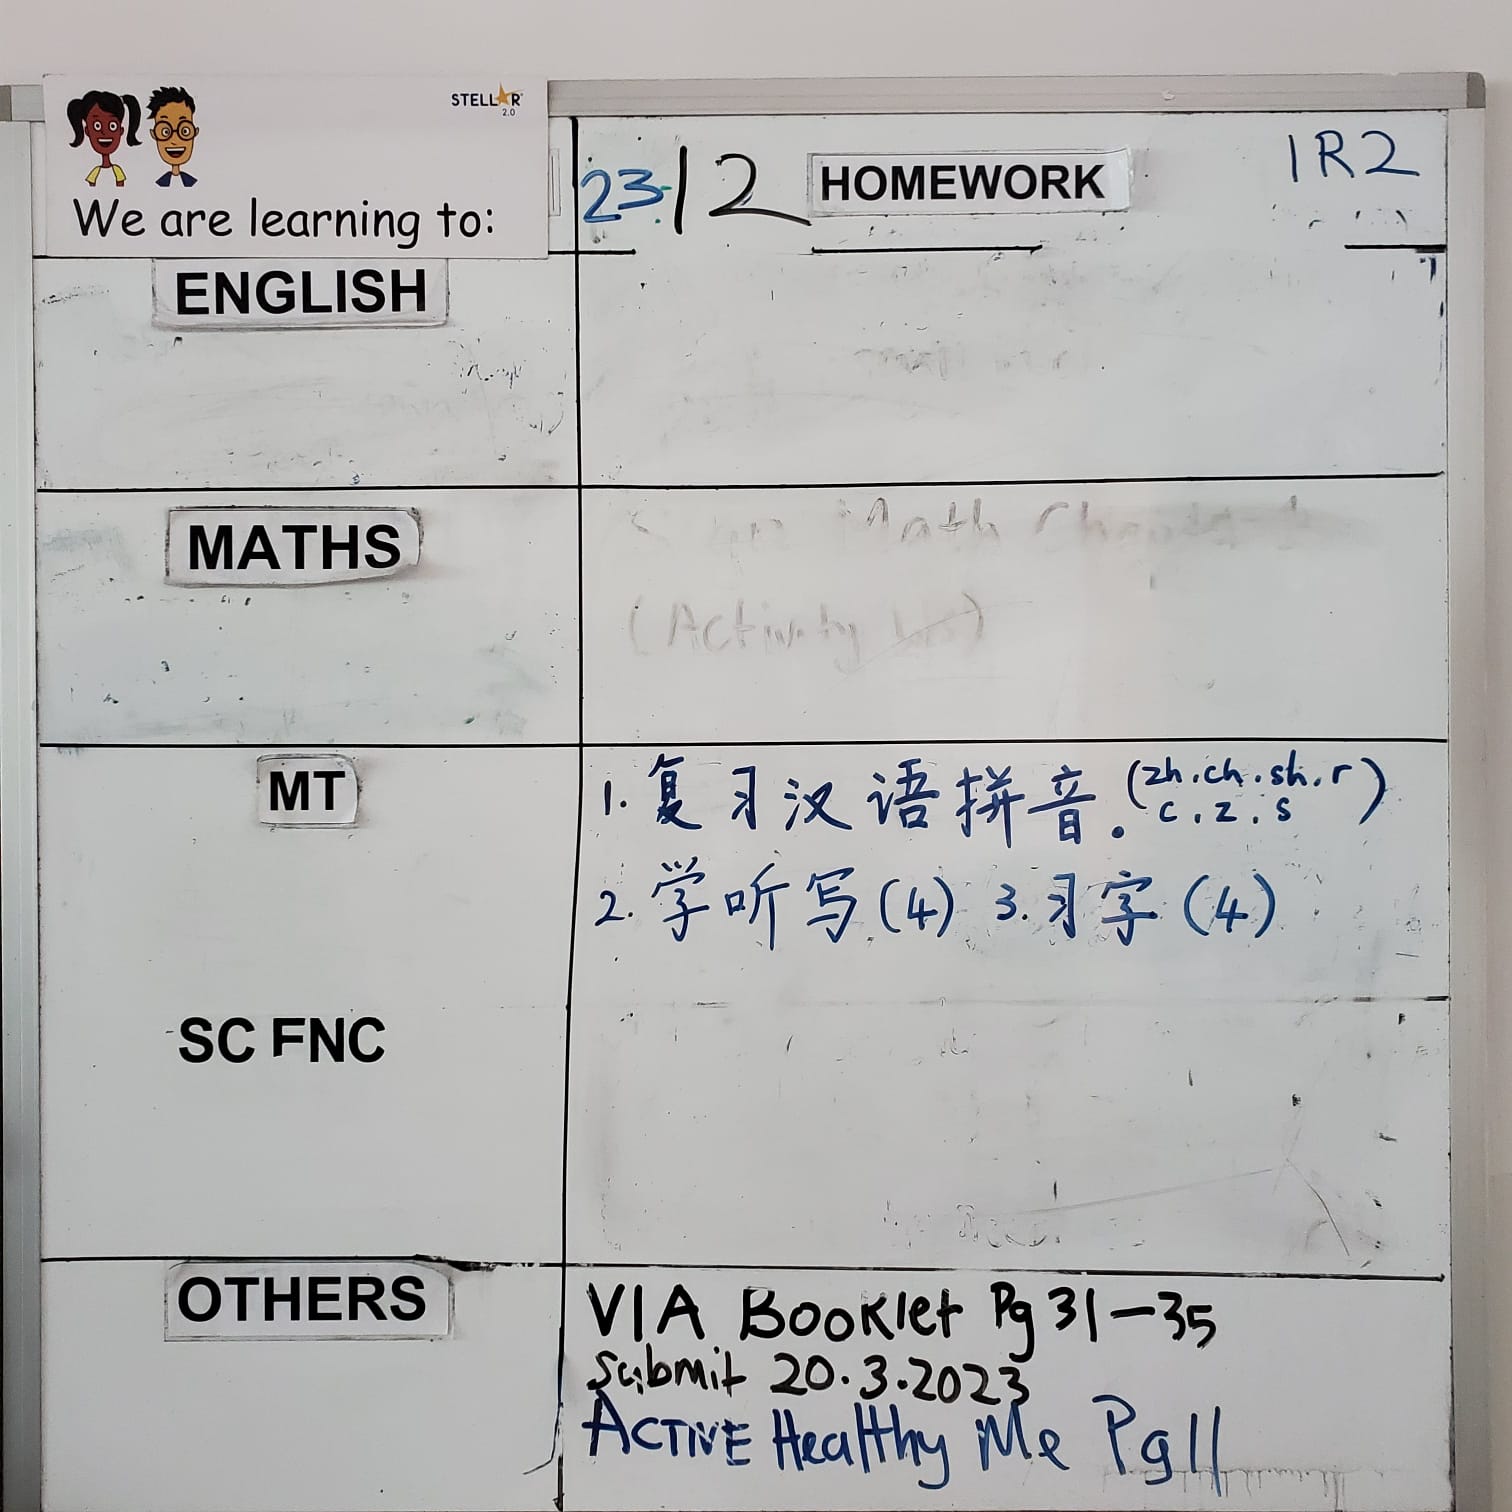 STELLAR 2.0
We are learning to:
23/2 HOMEWORK 1R2
ENGLISH
MATHS
Math
(Activity
MT
1. 复习汉语拼音。(zh.ch.sh.r c.z.s)
2. 学听写(4) 3. 习字(4)
SC FNC
OTHERS
VIA Booklet Pg 31-35
Submit 20.3.2023
Active Healthy Me Pg 11